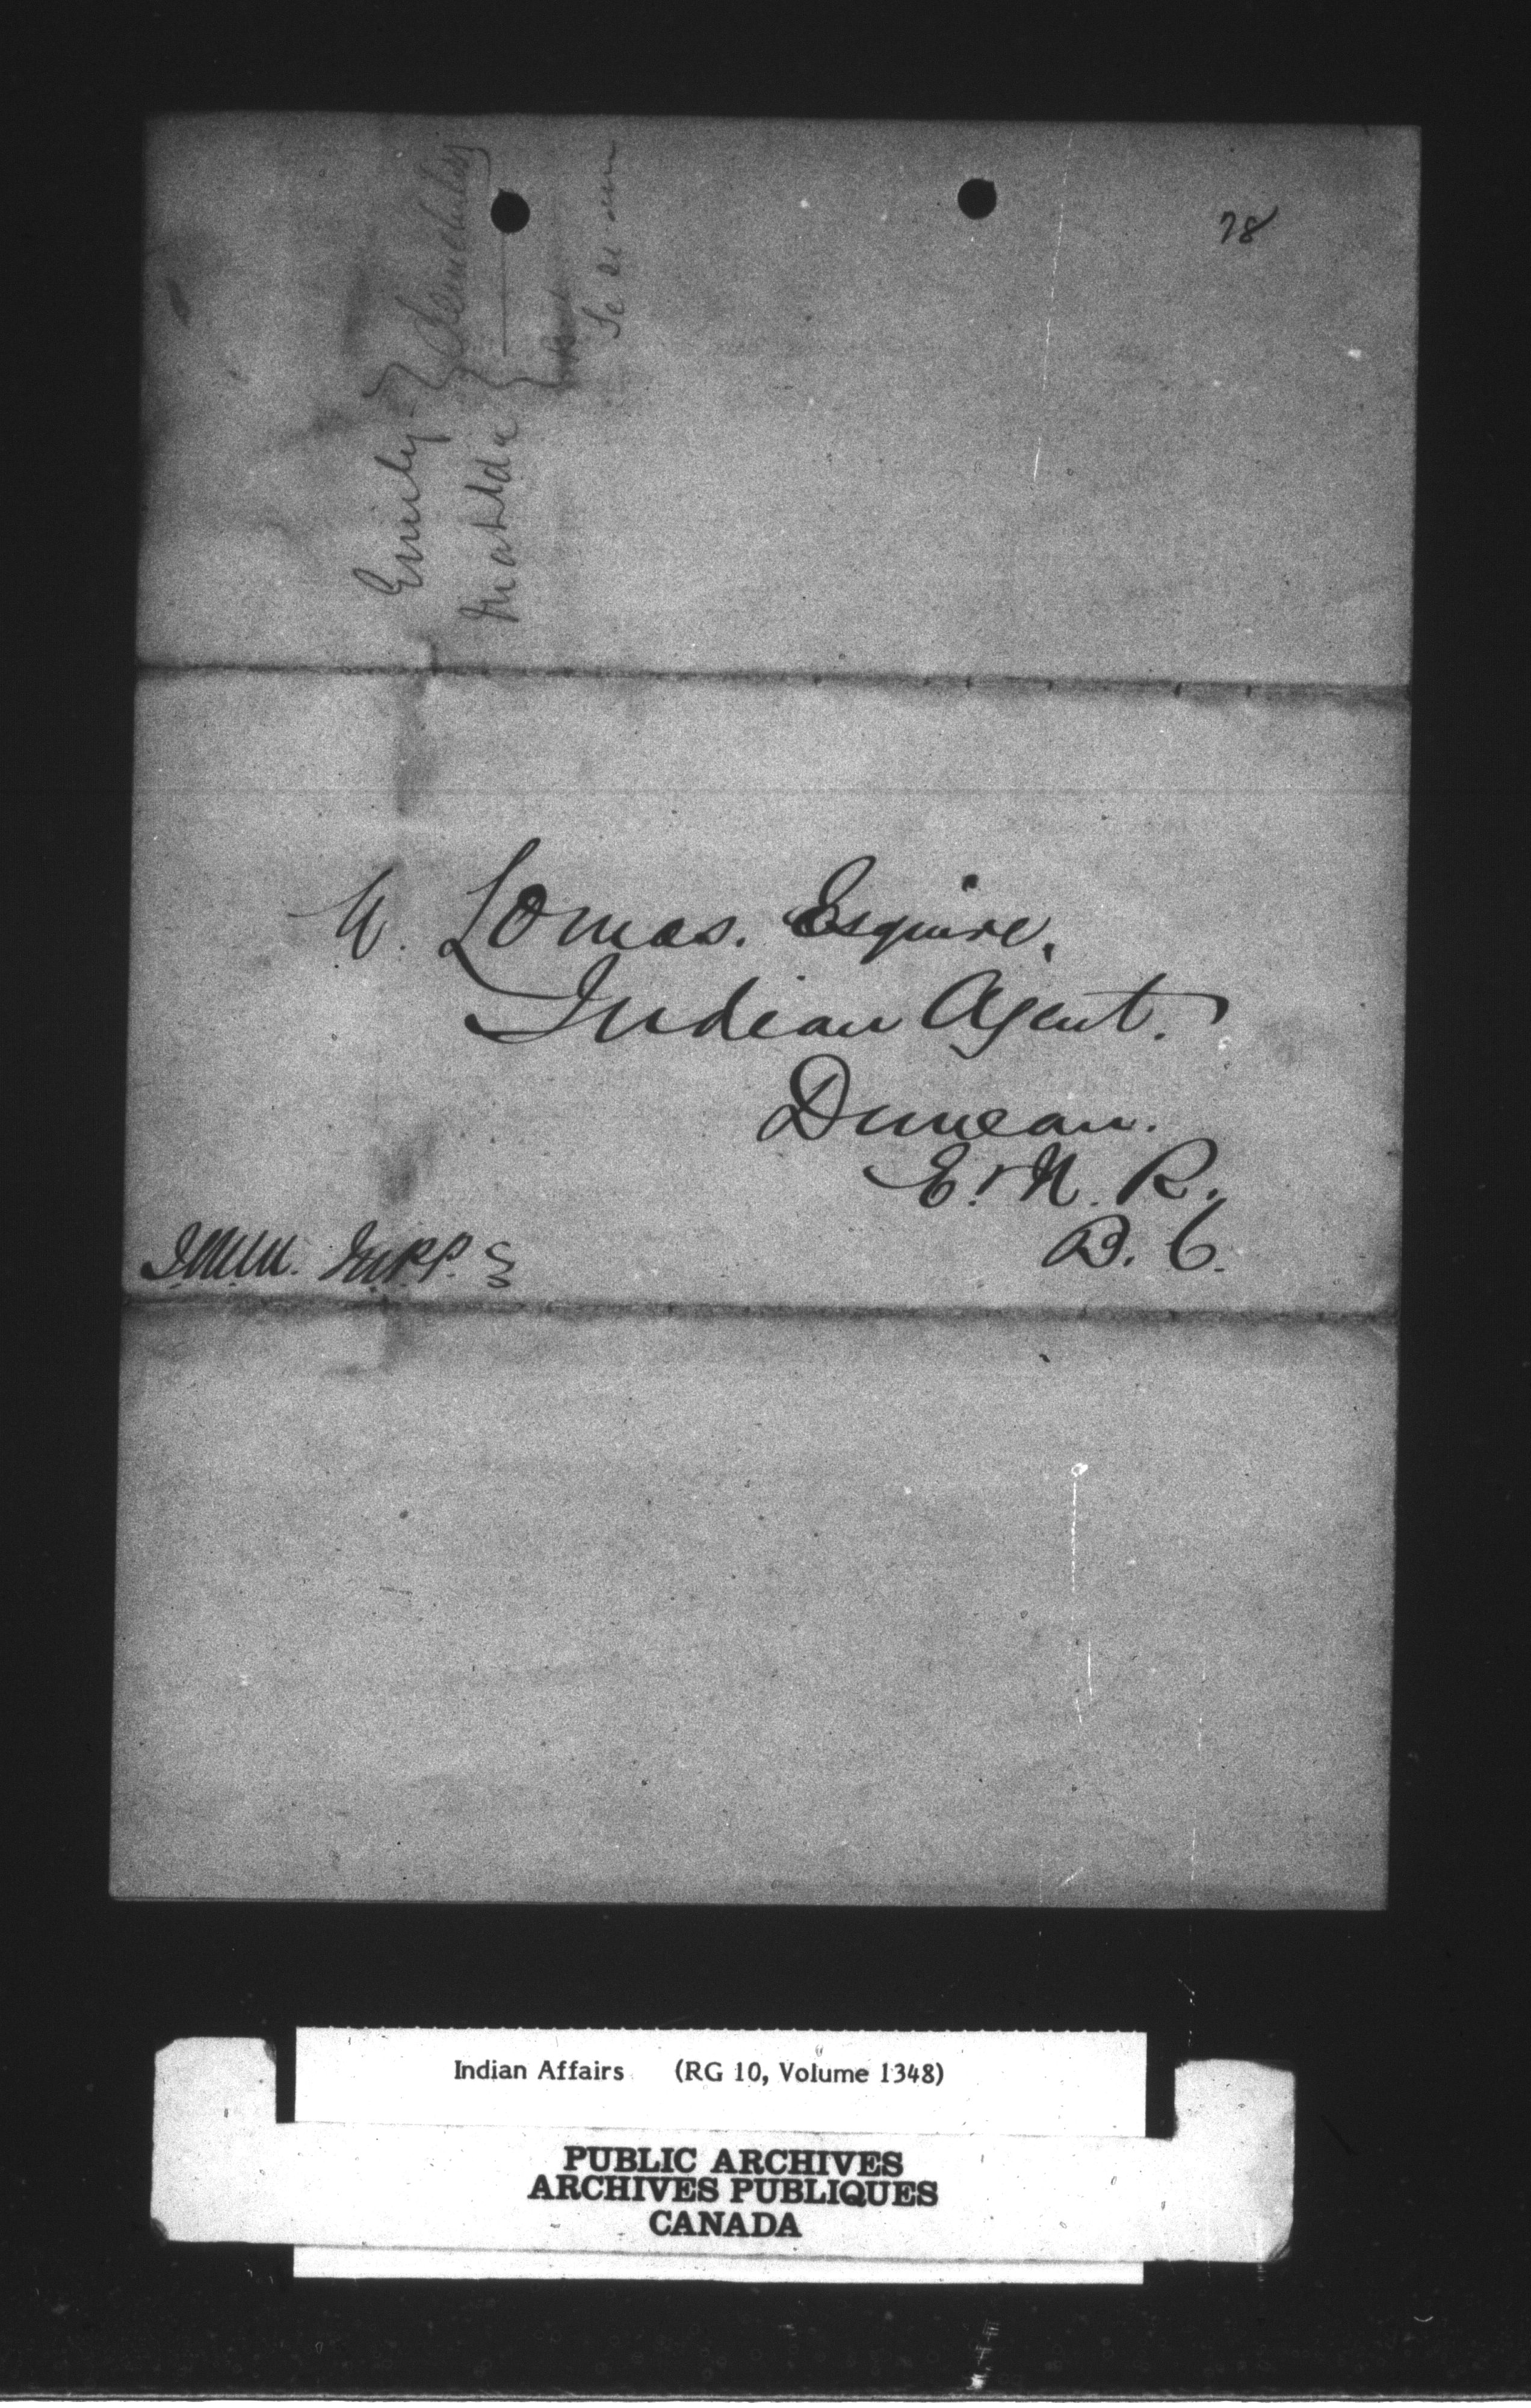 78
Emily
Matilda
W. Lomas. Esquire.
Indian Agent.
Duncan.
E. & N. R.
B. C.
Indian Affairs (RG 10, Volume 1348)
PUBLIC ARCHIVES
ARCHIVES PUBLIQUES
CANADA